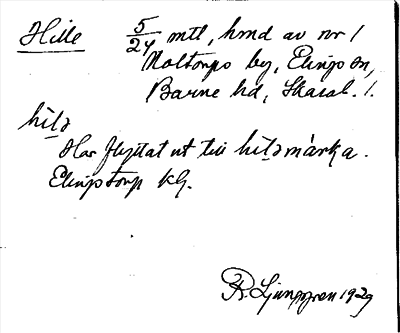 Hille 5/24 mtl, hmd av nr 1
Noltorps by, Elings sn,
Barne hd, Skarab. l.
hìlə
Har flyttat ut till hìləmàrka.
Elingstorp kG.
R. Ljunggren 1929